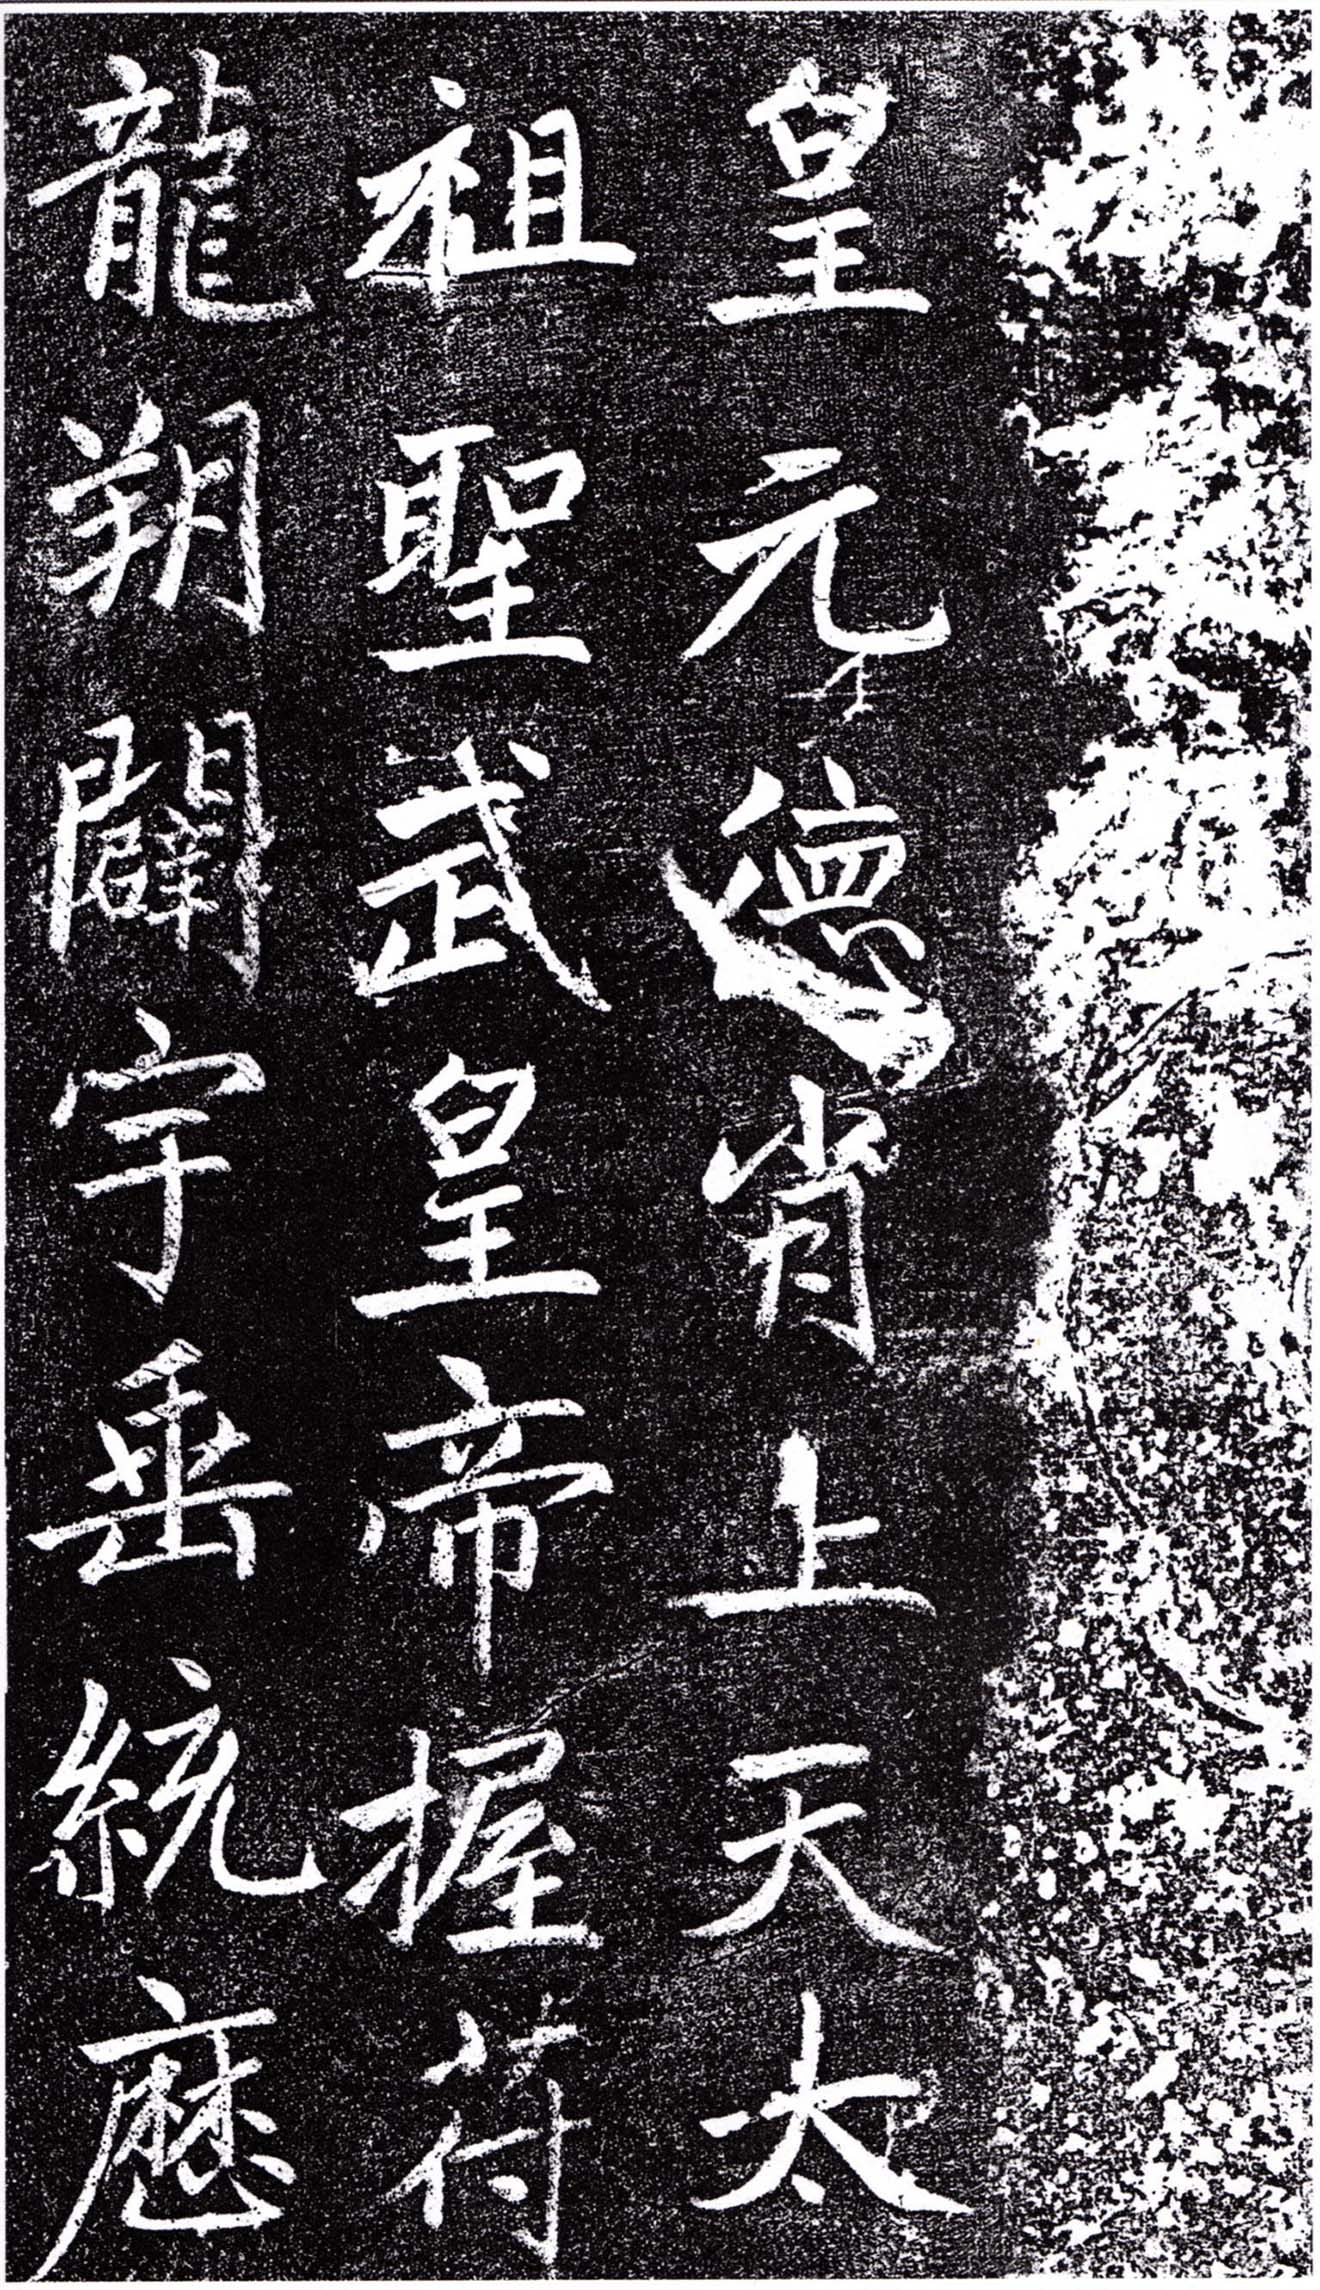 皇元德肖上天太
祖聖武皇帝握符
龍朔闢宇垂統歷